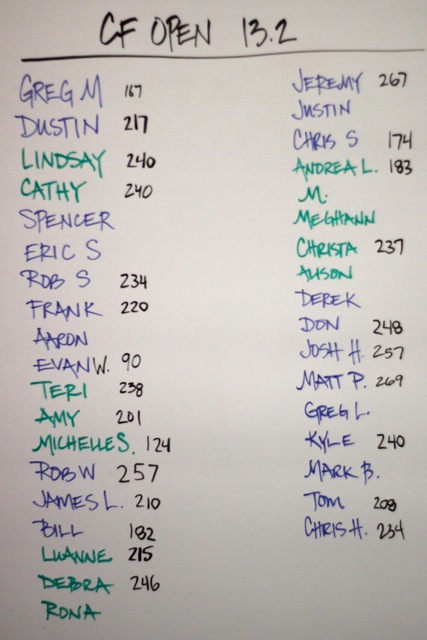 CF OPEN 13.2
GREG M 167
DUSTIN 217
LINDSAY 240
CATHY 240
SPENCER
ERIC S
ROB S 234
FRANK 220
AARON
EVAN W. 90
TERI 238
AMY 201
MICHELLE S. 124
ROB W 257
JAMES L. 210
BILL 182
LUANNE 215
DEBRA 246
RONA
JEREMY 267
JUSTIN
CHRIS S 174
ANDREA L. 183
M.
MEGHANN
CHRISTA 237
ALISON
DEREK
DON 248
JOSH H. 257
MATT P. 269
GREG L.
KYLE 240
MARK B.
TOM 208
CHRIS H. 234